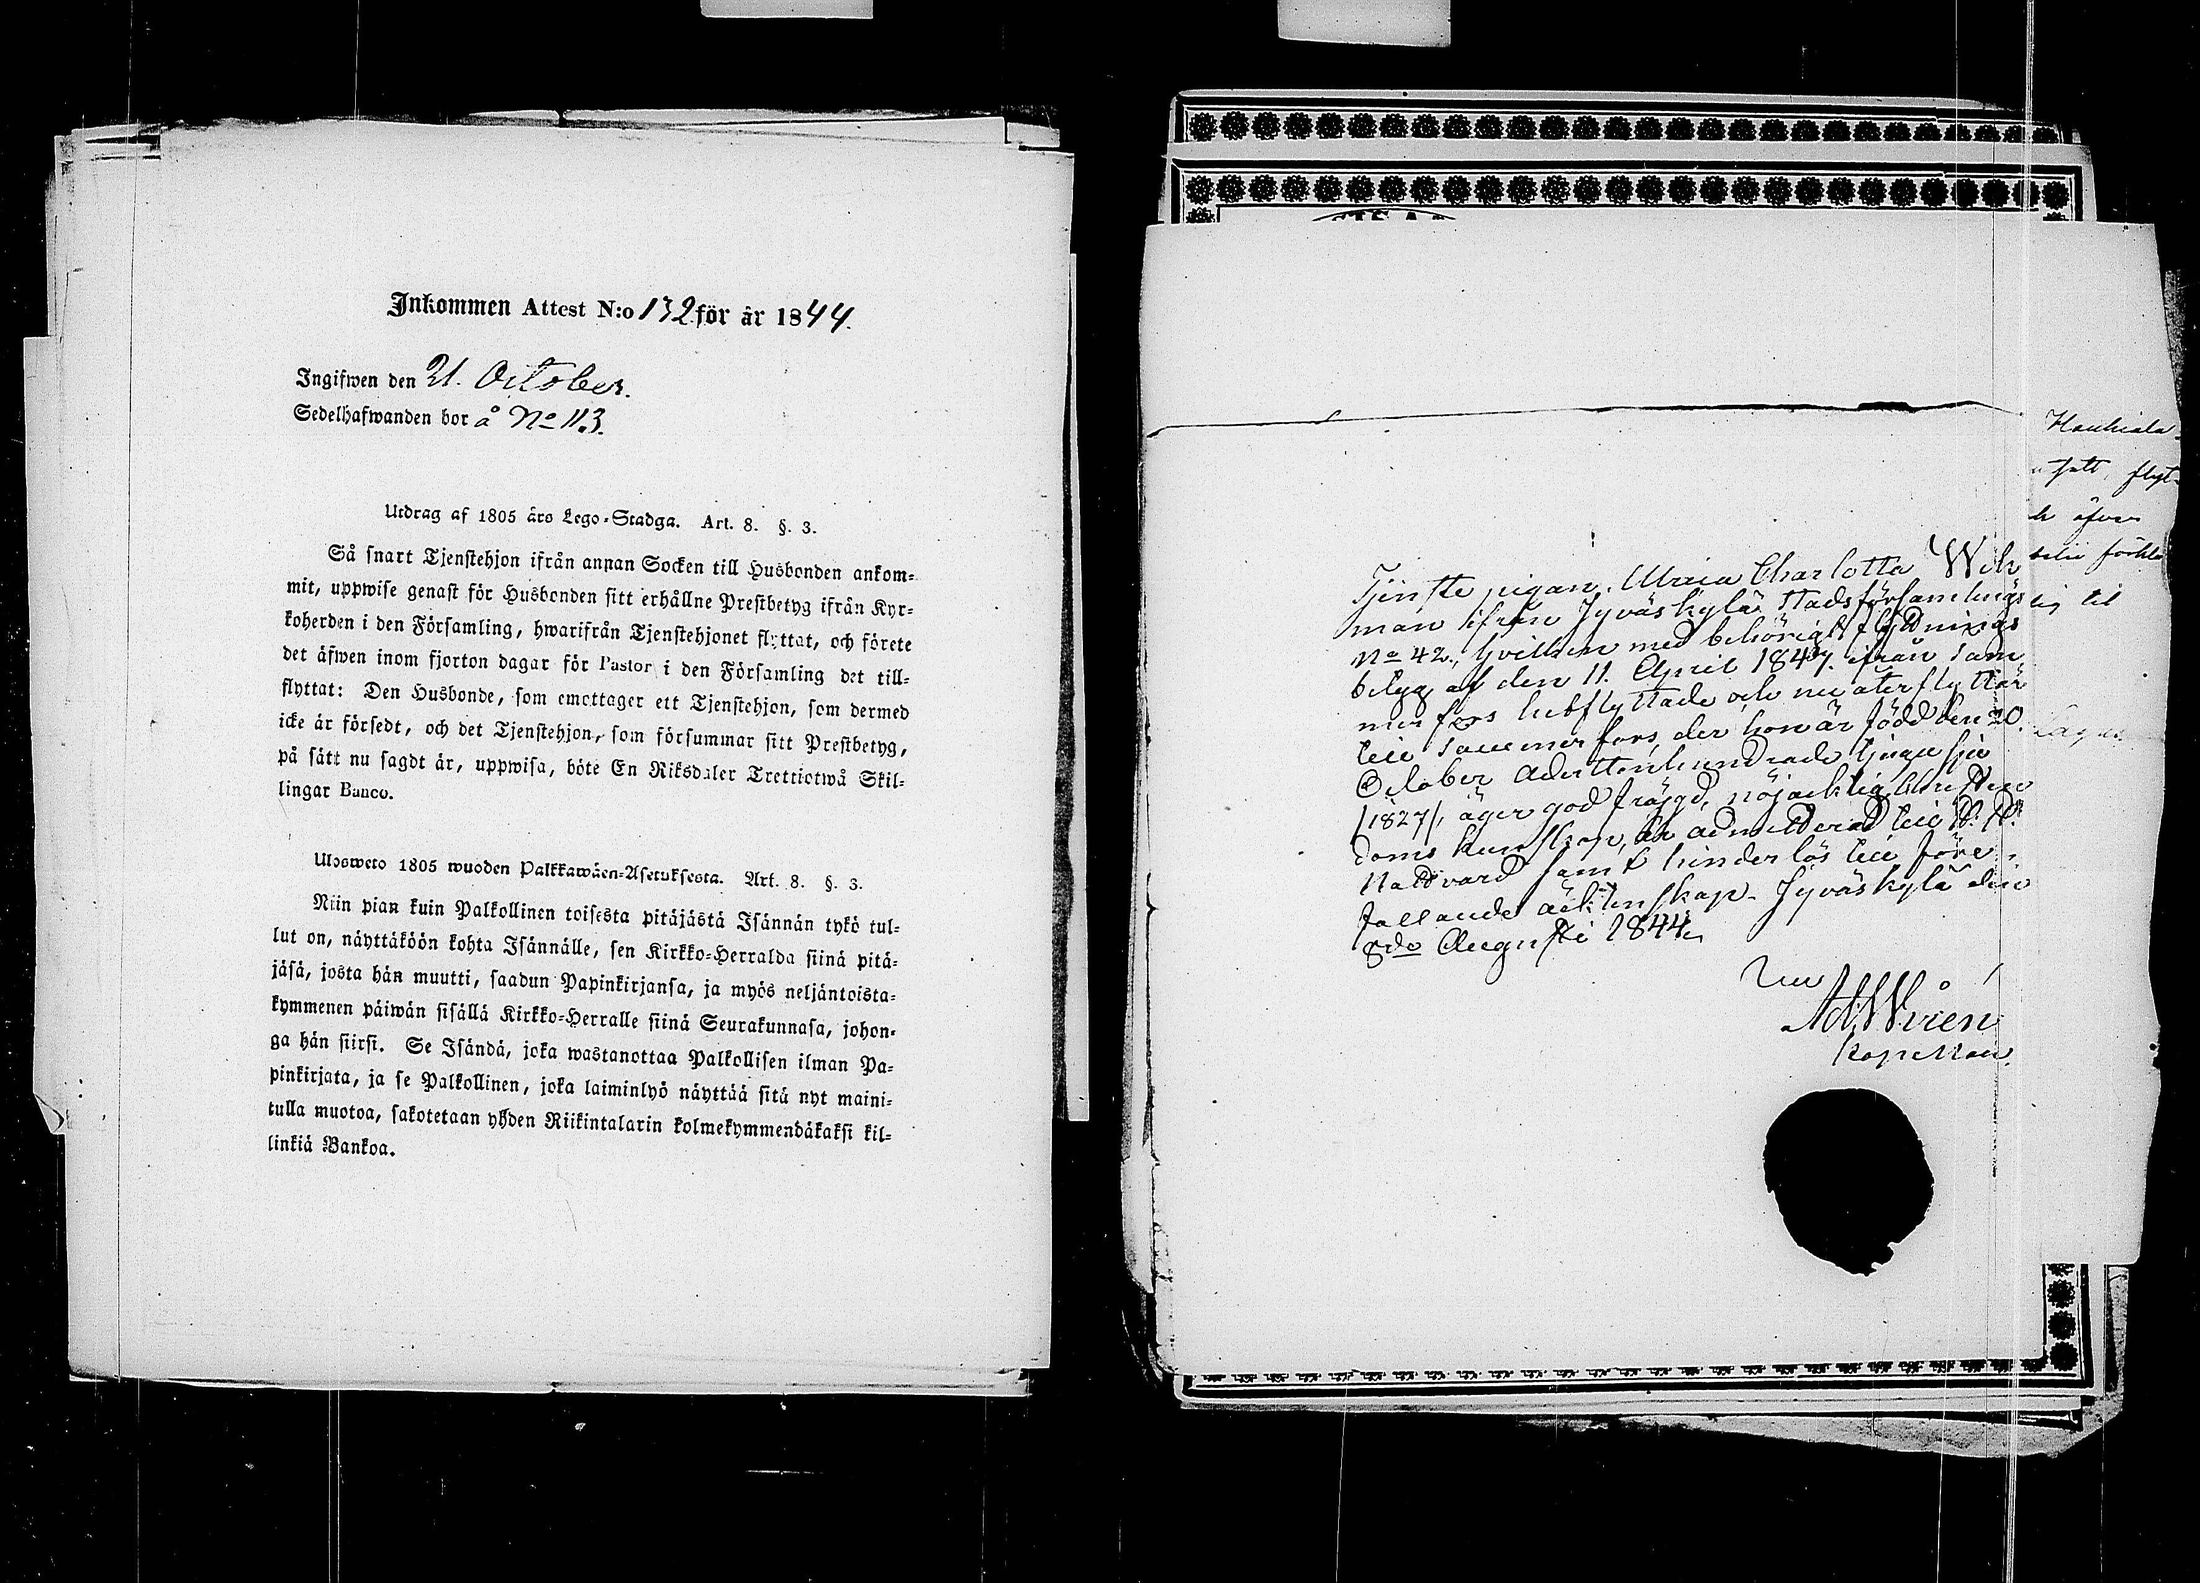 Inkommen Attest N:o 132 för år 1844.
Ingifwen den 21. October.
Sedelhafwanden bor å No 113.
Utdrag af 1805 års Lego-Stadga. Art. 8. §. 3.
Så snart Tjenstehjon ifrån annan Socken till Husbonden ankom-
mit, uppwise genast för Husbonden sitt erhållne Prestbetyg ifrån Kyr-
koherden i den Församling, hwarifrån Tjenstehjonet flyttat, och förete
det äfwen inom fjorton dagar för Pastor i den Församling det till-
flyttat: Den Husbonde, som emottager ett Tjenstehjon, som dermed
icke är försedt, och det Tjenstehjon, som försummar sitt Prestbetyg,
på sätt nu sagdt är, uppwisa, böte En Riksdaler Trettiotwå Skil-
lingar Banco.
Ulosweto 1805 wuoden Palkkawäen-Asetuksesta. Art. 8. §. 3.
Niin pian kuin Palkollinen toisesta pitäjästä Isännän tykö tul-
lut on, näyttäköön kohta Isännälle, sen Kirkko-Herralda siinä pitä-
jäsä, josta hän muutti, saadun Papinkirjansa, ja myös neljäntoista-
kymmenen päiwän sisällä Kirkko-Herralle siinä Seurakunnasa, johon-
ga hän siirsi. Se Isändä, joka wastanottaa Palkollisen ilman Pa-
pinkirjata, ja se Palkollinen, joka laiminlyö näyttää sitä nyt maini-
tulla muotoa, sakotetaan yhden Riikintalarin kolmekymmendäkaksi kil-
linkiä Bankoa.
Tjenste pigan, Maria Charlotta Wik
man ifrån Jyväskylä Stadsförsamlings
No 42., hvilken med behörigt flyttnings
betyg af den 11. April 1844. ifrån Tam
mer fors hitflyttade och nu återflyttar
till Tammerfors, der hon är född den 20
October Adertonhundrade tjugu sju
/1827/, äger god frägd, nöjacktig Christen
doms kunskap, är admitterad till H. H.
Nattvard samt hinderlös till före-
fallande äcktenskap. Jyväskylä den
8de Augusti 1844.
Ad. Wirén
Kapellan.
öfver
til